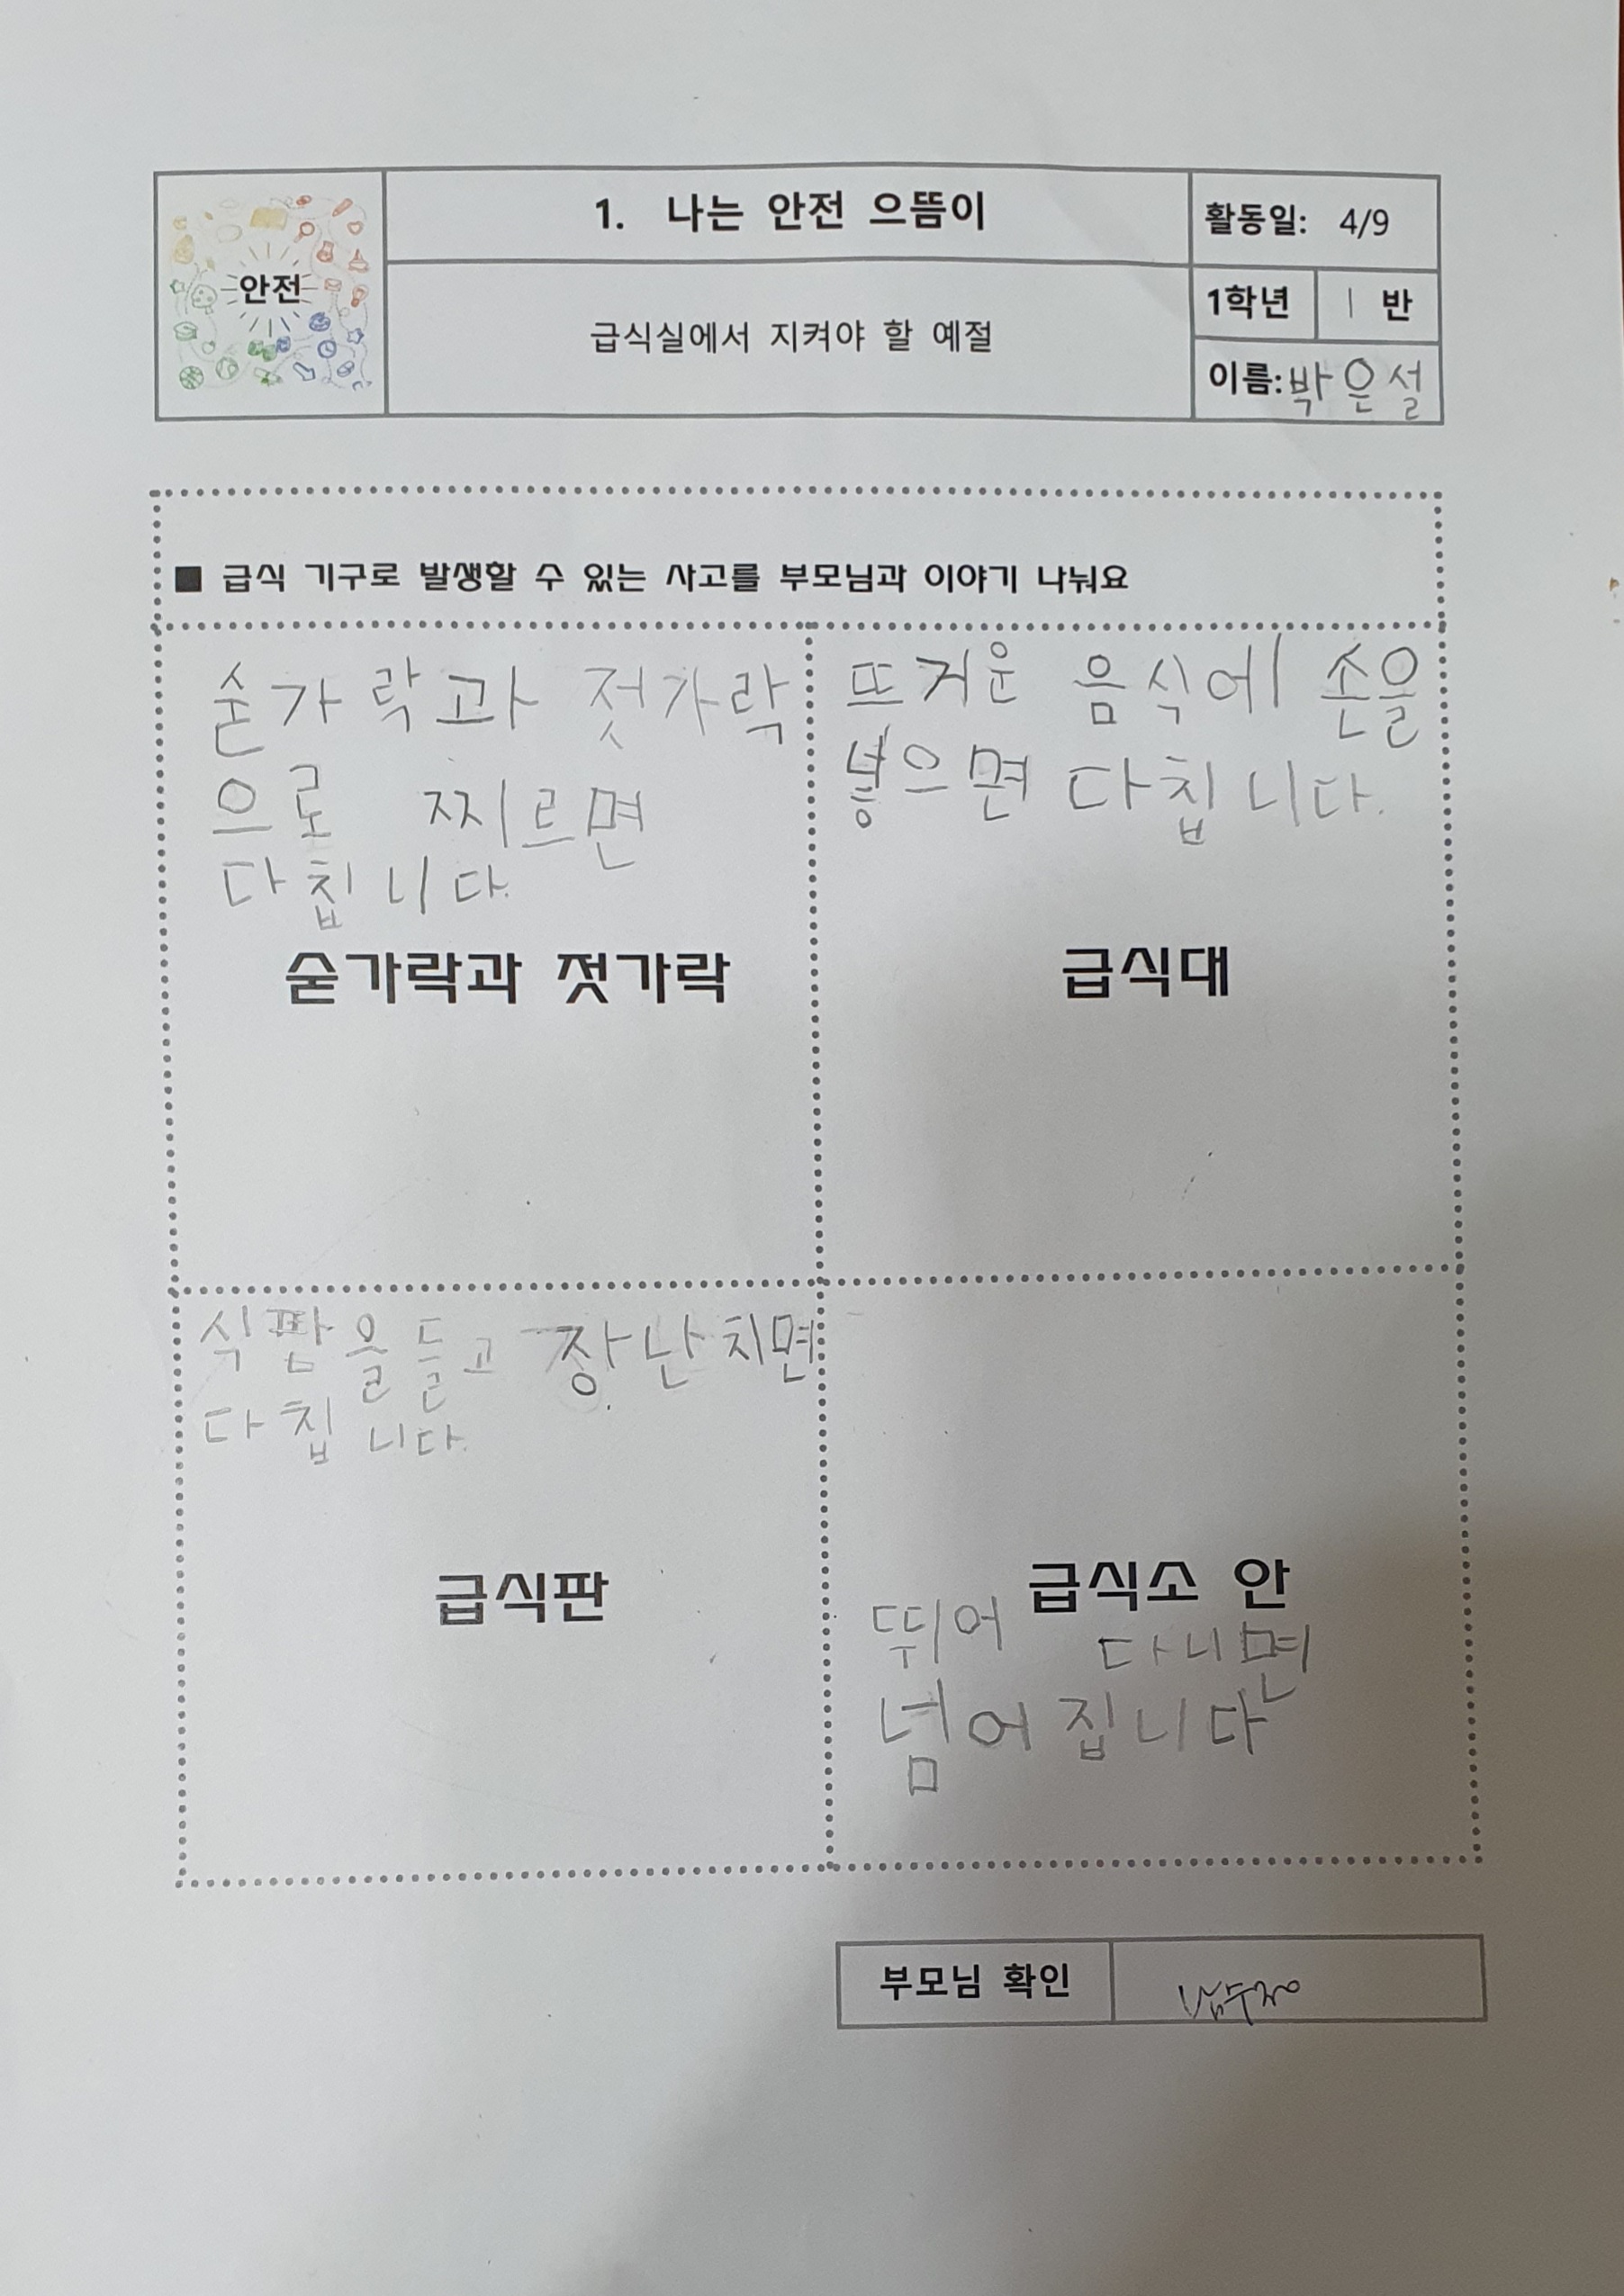 안전
1. 나는 안전 으뜸이
급식실에서 지켜야 할 예절
활동일: 4/9
1학년 1 반
이름: 박은설
■ 급식 기구로 발생할 수 있는 사고를 부모님과 이야기 나눠요
숟가락과 젓가락
으로 찌르면
다칩니다.
숟가락과 젓가락
뜨거운 음식에 손을
다칩니다.
급식대
식판을 들고 장난치면
다칩니다.
급식판
급식소 안
뛰어 다니면
넘어집니다
부모님 확인